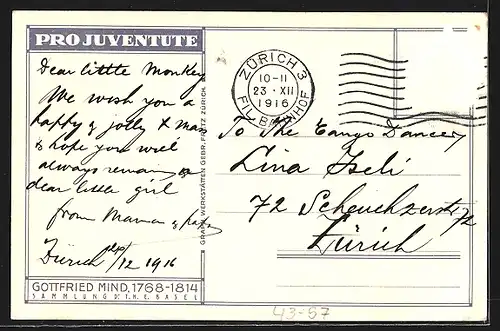 PRO JUVENTUTE
Dear little Monkey
We wish you a
happy & jolly Xmas
& hope you will
always remain a
dear little girl
from Mama & papa
Zürich /12 1916
GOTTFRIED MIND, 1768-1814
SAMMLUNG BASEL
GRAPH. WERKSTÄTTEN GEBR. FRETZ ZÜRICH
ZÜRICH 3
10-11
23.XII
1916
FIL. BAHNHOF
To The Tango Dancer
Lina Iseli
72 Scheuchzerstr. 72
Zürich
43-57